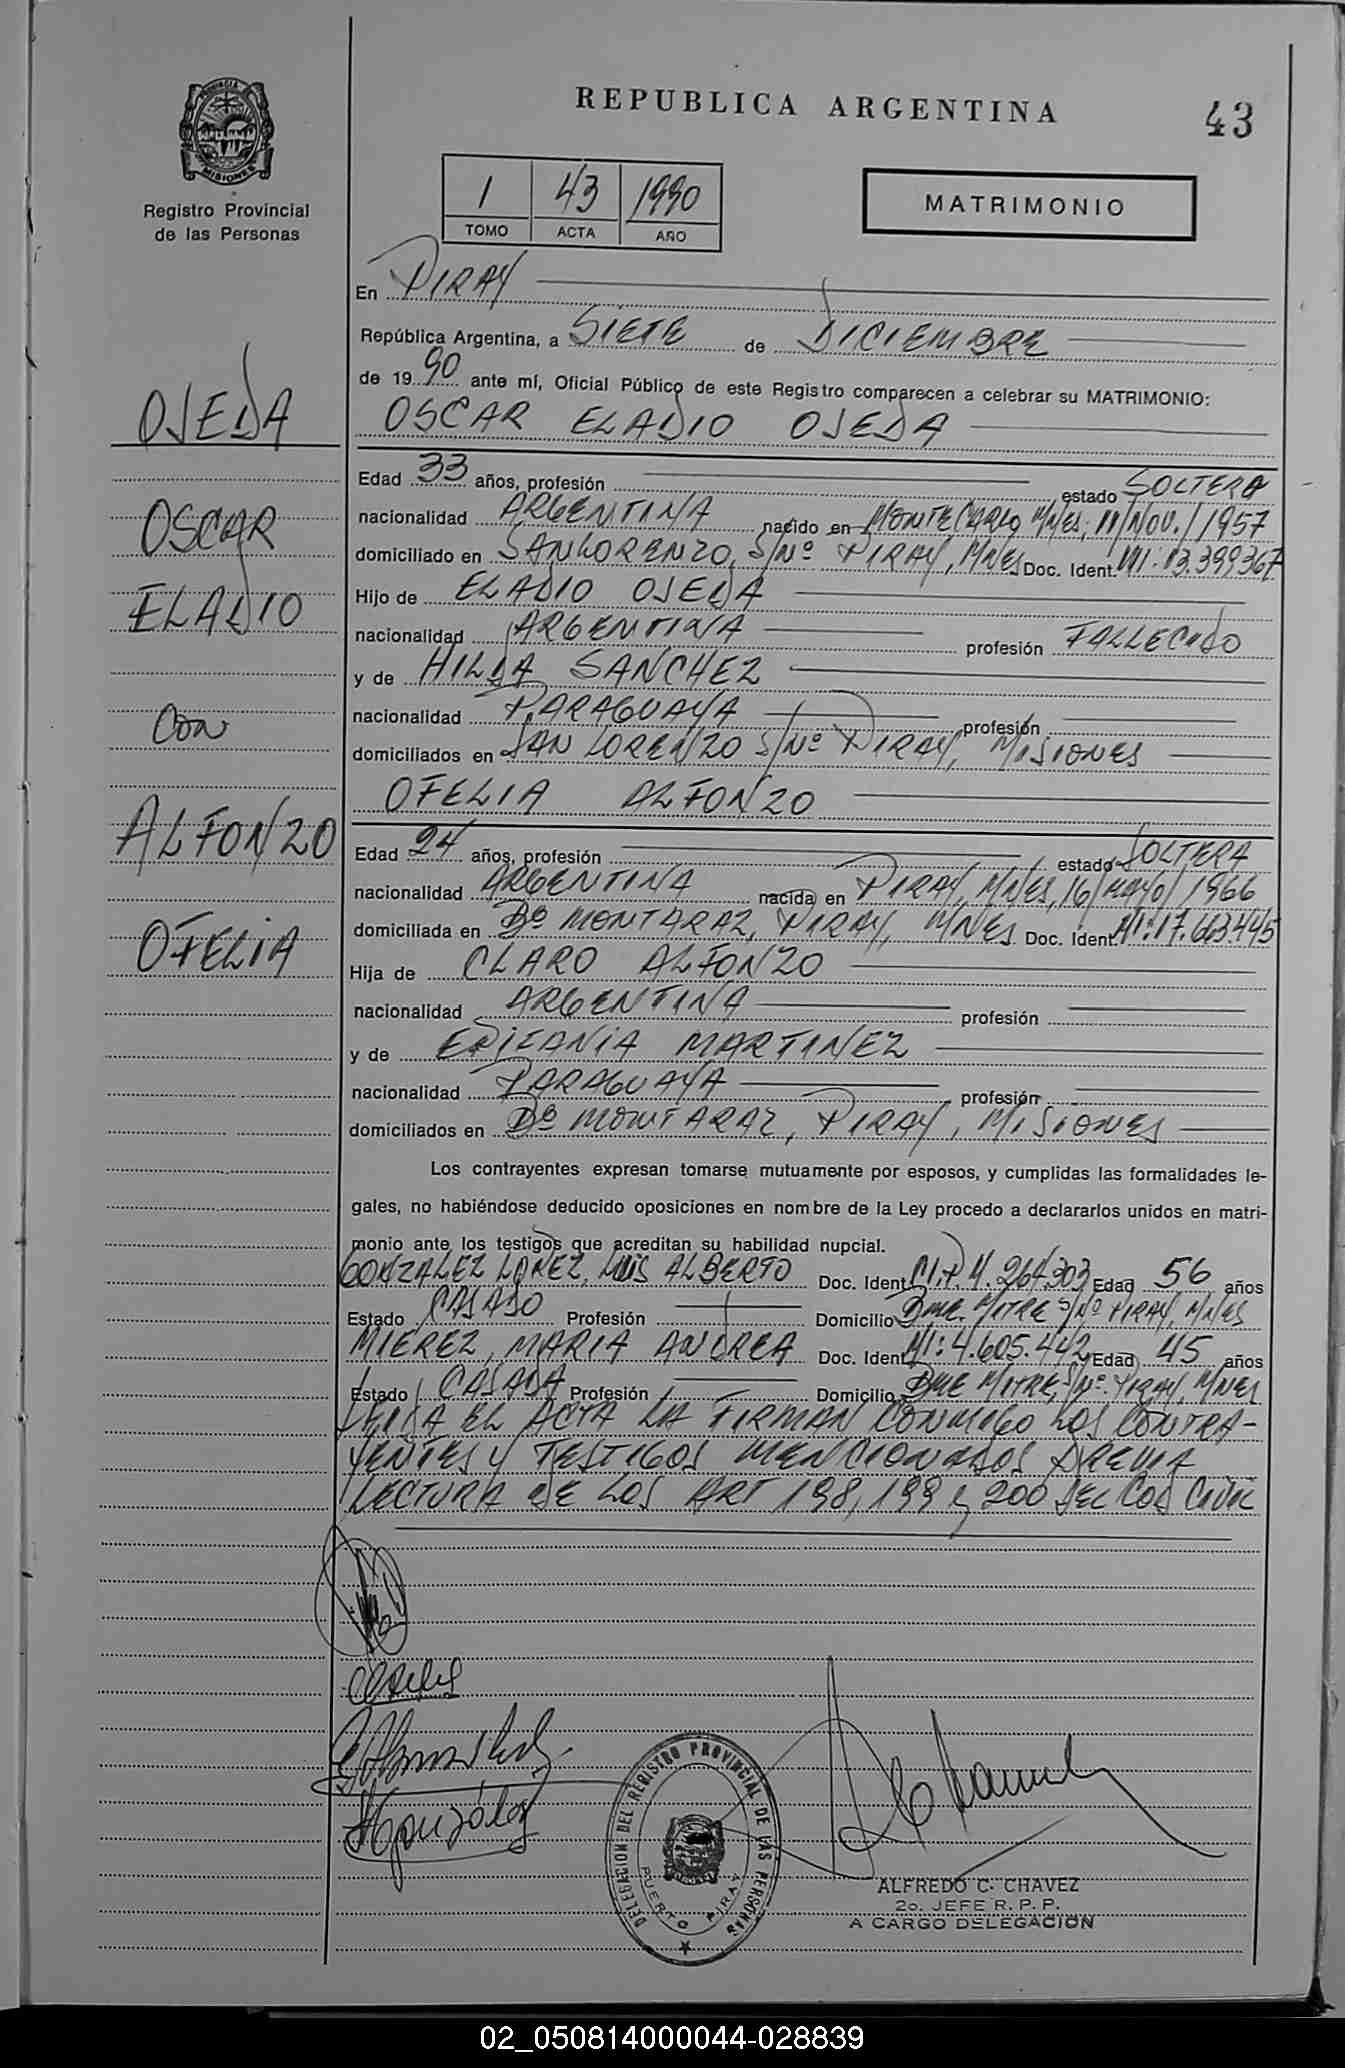 REPUBLICA ARGENTINA
43
PROVINCIA DE
MISIONES
Registro Provincial
de las Personas
1 43 1990
TOMO ACTA AÑO
MATRIMONIO
En PIRAY
República Argentina, a SIETE de DICIEMBRE
de 1990 ante mí, Oficial Público de este Registro comparecen a celebrar su MATRIMONIO:
OSCAR ELADIO OJEDA
OJEDA
OSCAR
ELADIO
Con
ALFONZO
OFELIA
Edad 33 años, profesión estado SOLTERO
nacionalidad ARGENTINA nacido en MONTECARLO, MNES, 11/NOV./1957
domiciliado en SAN LORENZO, S/Nº PIRAY, MNES Doc. Ident. MI: 13.399.367
Hijo de ELADIO OJEDA
nacionalidad ARGENTINA profesión FALLECIDO
y de HILDA SANCHEZ
nacionalidad PARAGUAYA profesión
domiciliados en SAN LORENZO S/Nº PIRAY, MISIONES
OFELIA ALFONZO
Edad 24 años, profesión estado SOLTERA
nacionalidad ARGENTINA nacida en PIRAY, MNES, 16/MAYO/1966
domiciliada en Bº MONTARAZ, PIRAY, MNES Doc. Ident. MI: 17.663.445
Hija de CLARO ALFONZO
nacionalidad ARGENTINA profesión
y de EPIFANIA MARTINEZ
nacionalidad PARAGUAYA profesión
domiciliados en Bº MONTARAZ, PIRAY, MISIONES
Los contrayentes expresan tomarse mutuamente por esposos, y cumplidas las formalidades le-
gales, no habiéndose deducido oposiciones en nombre de la Ley procedo a declararlos unidos en matri-
monio ante los testigos que acreditan su habilidad nupcial.
GONZALEZ LOPEZ, LUIS ALBERTO Doc. Ident. 264.303 Edad 56 años
Estado CASADO Profesión Domicilio Bme. MITRE S/Nº PIRAY, MNES
MIEREZ, MARIA ANDREA Doc. Ident. MI: 4.605.442 Edad 45 años
Estado CASADA Profesión Domicilio Bme MITRE, S/Nº PIRAY, MNES
LEIDA EL ACTA LA FIRMAN CONMIGO LOS CONTRA-
YENTES Y TESTIGOS MENCIONADOS PREVIA
LECTURA DE LOS ART 198, 199 y 200 DEL COD CIVIL
González
DELEGACION DEL REGISTRO PROVINCIAL DE LAS PERSONAS
PUERTO PIRAY
ALFREDO C. CHAVEZ
2o. JEFE R. P. P.
A CARGO DELEGACION
02_050814000044-028839